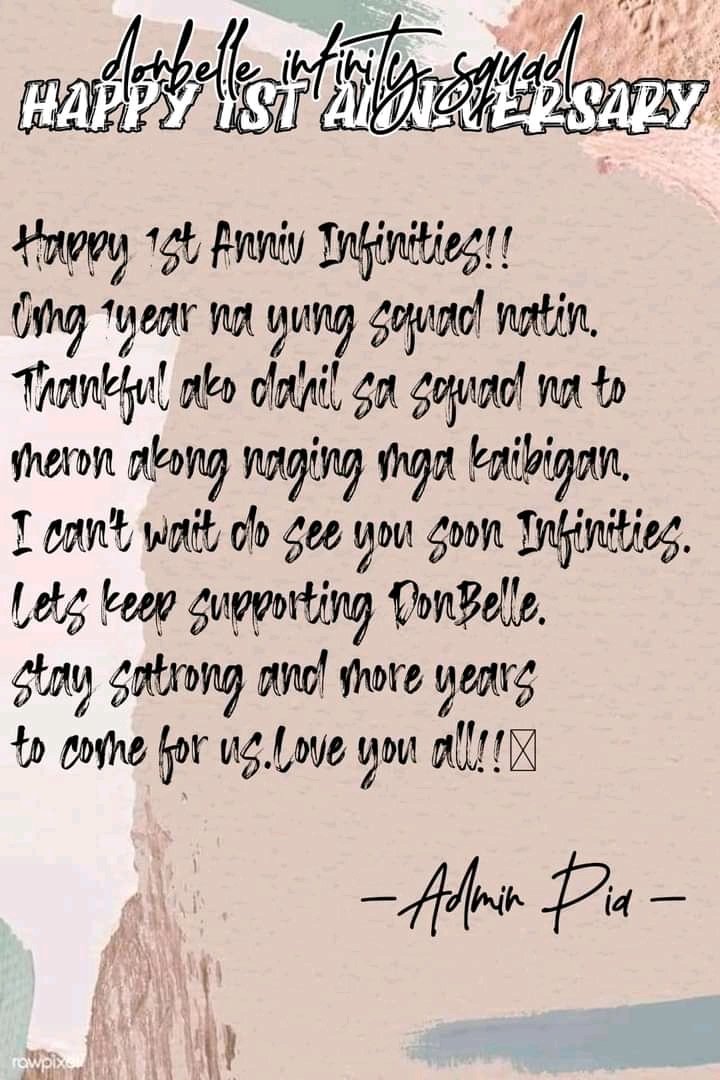 donbelle infinity squad
HAPPY 1ST ANNIVERSARY
Happy 1st Anniv Infinities!!
Omg 1year na yung squad natin.
Thankful ako dahil sa squad na to
meron akong naging mga kaibigan.
I can't wait do see you soon Infinities.
Lets keep supporting DonBelle.
stay satrong and more years
to come for us.Love you all!!
—Admin Pia—
rawpixel